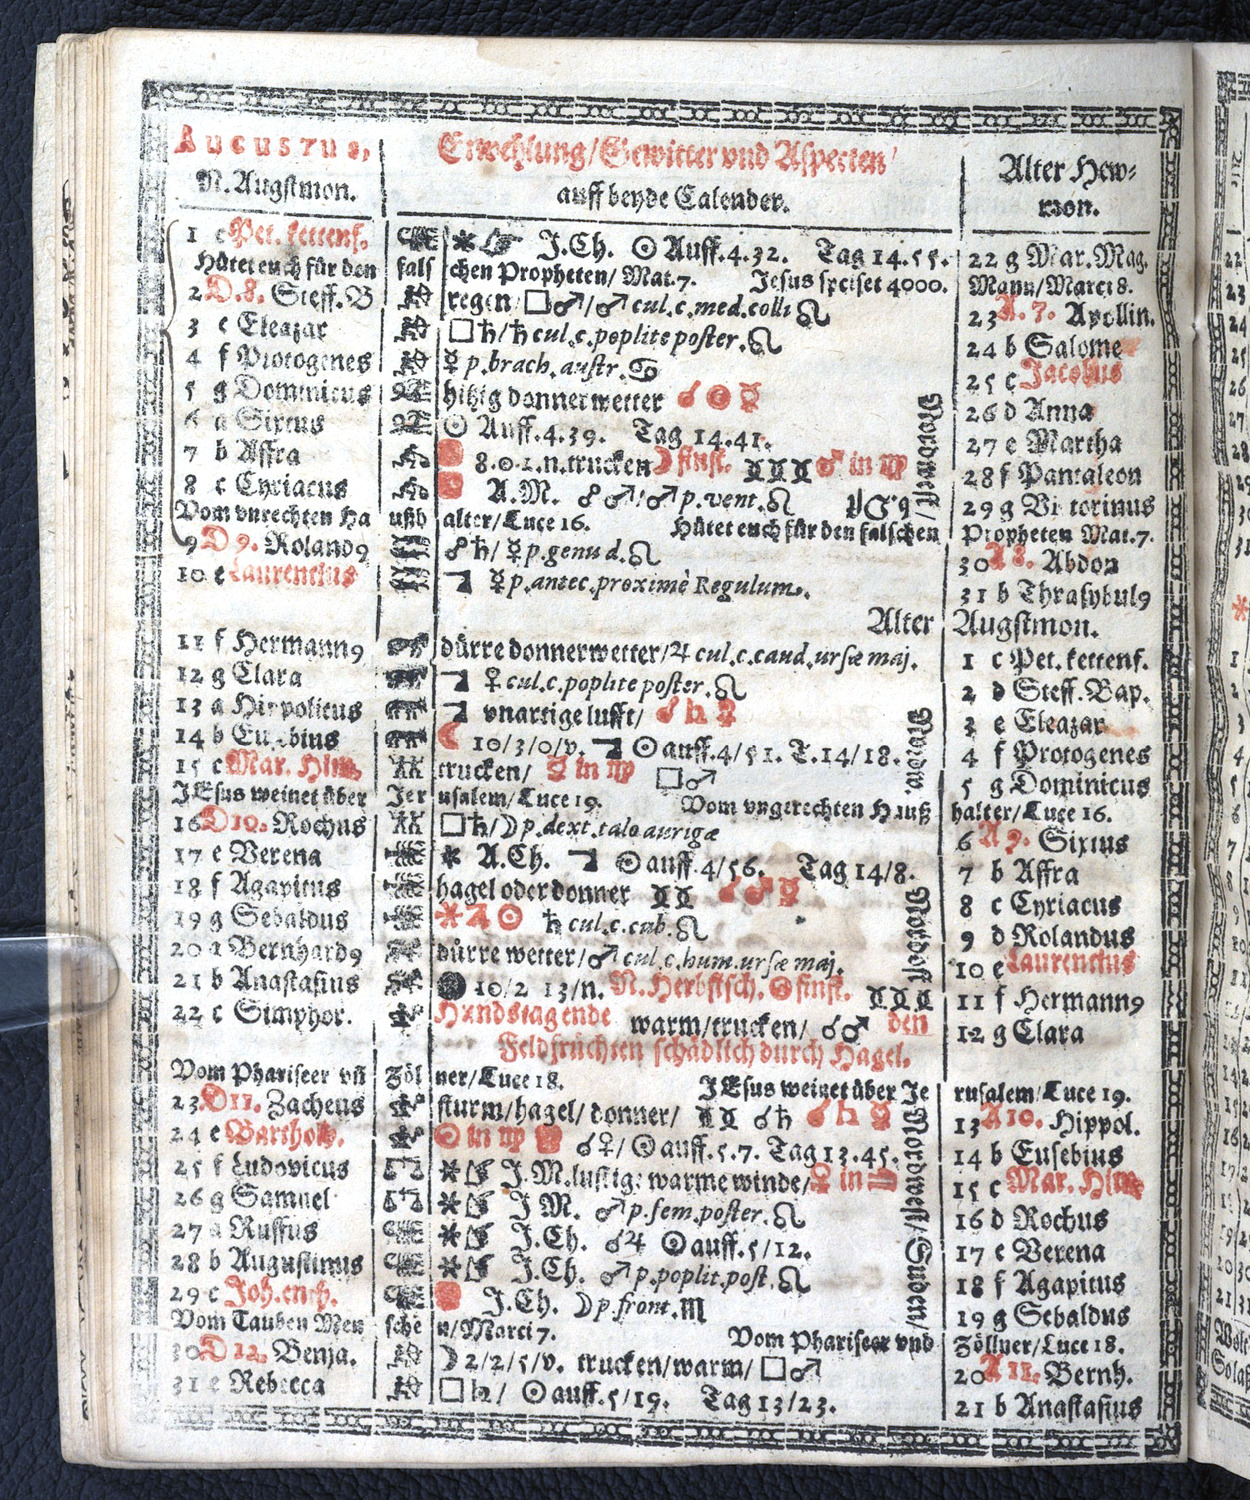 AUGUSTUS, Erwehlung/Gewitter vnd Aspecten Alter Hew-
N. Augstmon. auff beyde Calender. mon.
1 c Pet. kettenf. ✶ J.Ch. ☉ Auff.4.32. Tag 14.55. 22 g Mar. Mag.
Hütet euch für den fals chen Propheten/ Mat.7. Jesus speiset 4000. Mann/Marci 8.
2 D.8. Steff. B regen/□♂/♂ cul.c.med.colli ♌ 23 A.7. Apollin.
3 e Eleazar □♄/♄ cul.c.poplite poster.♌ 24 b Salome
4 f Protogenes ☿ p.brach.austr.♋ 25 c Jacobus
5 g Dominicus hitzig donnerwetter ☌ ☉ ☿ 26 d Anna
6 a Sixtus ☉ Auff.4.39. Tag 14.41. 27 e Martha
7 b Affra 8.0.1.n.trucken ☽ finst. ♊♊♊ ♂ in ♍ 28 f Pantaleon
8 c Cyriacus A.M. ☍ ♂/♂ p.vent.♌ 29 g Victorinus
Vom vnrechten Ha ußh alter/Luce 16. Hütet euch für den falschen Propheten Mat.7.
9 D 9. Roland9 ☍♄/☿ p.genu d.♌ 30 A 8. Abdon
10 e Laurentius ☿ p.antec.proximè Regulum. 31 b Thrasybul9
Alter Augstmon.
11 f Hermann9 dürre donnerwetter/♃ cul.c.caud.ursæ maj. 1 c Pet. kettenf.
12 g Clara ♀ cul.c.poplite poster.♌ 2 d Steff. Bap.
13 a Hippolitus vnartige lufft/ ☌ ♄ ☿ 3 e Eleazar
14 b Eusebius ☾ 10/3/0/v. ☉ auff.4/51. T.14/18. 4 f Protogenes
15 c Mar. Him. trucken/ ☿ in ♍ □♂ 5 g Dominicus
JEsus weinet über Jer usalem/Luce 19. Vom vngerechten Hauß halter/Luce 16.
16 D 10. Rochus □♄/☽ p.dext.talo aurigæ 6 A 9. Sixtus
17 e Verena ✶ A.Ch. ☉ auff.4/56. Tag 14/8. 7 b Affra
18 f Agapitus hagel oder donner ♊♊ ☌♂☿ 8 c Cyriacus
19 g Sebaldus ✶♃☉ ♄ cul.c.cub.♌ 9 d Rolandus
20 a Bernhard9 dürre wetter/♂ cul.c.hum.ursæ maj. 10 e Laurentius
21 b Anastasius 10/2 13/n. N.Herbstsch. ☉ finst. ♊♊♊ 11 f Hermann9
22 c Simphor. Hundstag ende warm/trucken/ ☌♂ den 12 g Clara
Feldfrüchten schädlich durch Hagel.
Vom Phariseer vñ Zöl ner/Luce 18. JEsus weinet über Je rusalem/Luce 19.
23 D 11. Zacheus sturm/hagel/donner/ ♊♊ ☌♄ ☌ ♄ ☿ 13 A 10. Hippol.
24 e Barthol. ☉ in ♍ ☌♀/☉ auff.5.7. Tag 13.45. 14 b Eusebius
25 f Ludovicus ✶ J.M.lustige warme winde/♀ in ♎ 15 c Mar. Him.
26 g Samuel ✶ J M. ♂ p.fem.poster.♌ 16 d Rochus
27 a Ruffus ✶ J.Ch. ☌♃ ☉ auff.5/12. 17 e Verena
28 b Augustinus ✶ J.Ch. ♂ p.poplit.post.♌ 18 f Agapitus
29 c Joh. enth. J.Ch. ☽ p.front.♏ 19 g Sebaldus
Vom Tauben Men sche n/Marci 7. Vom Phariseer vnd Zöllner/Luce 18.
30 D 12. Benja. ☽ 2/2/5/v. trucken/warm/□♂ 20 A 11. Bernh.
31 e Rebecca □♄/ ☉ auff.5/19. Tag 13/23. 21 b Anastasius
Nordwest/Suden/